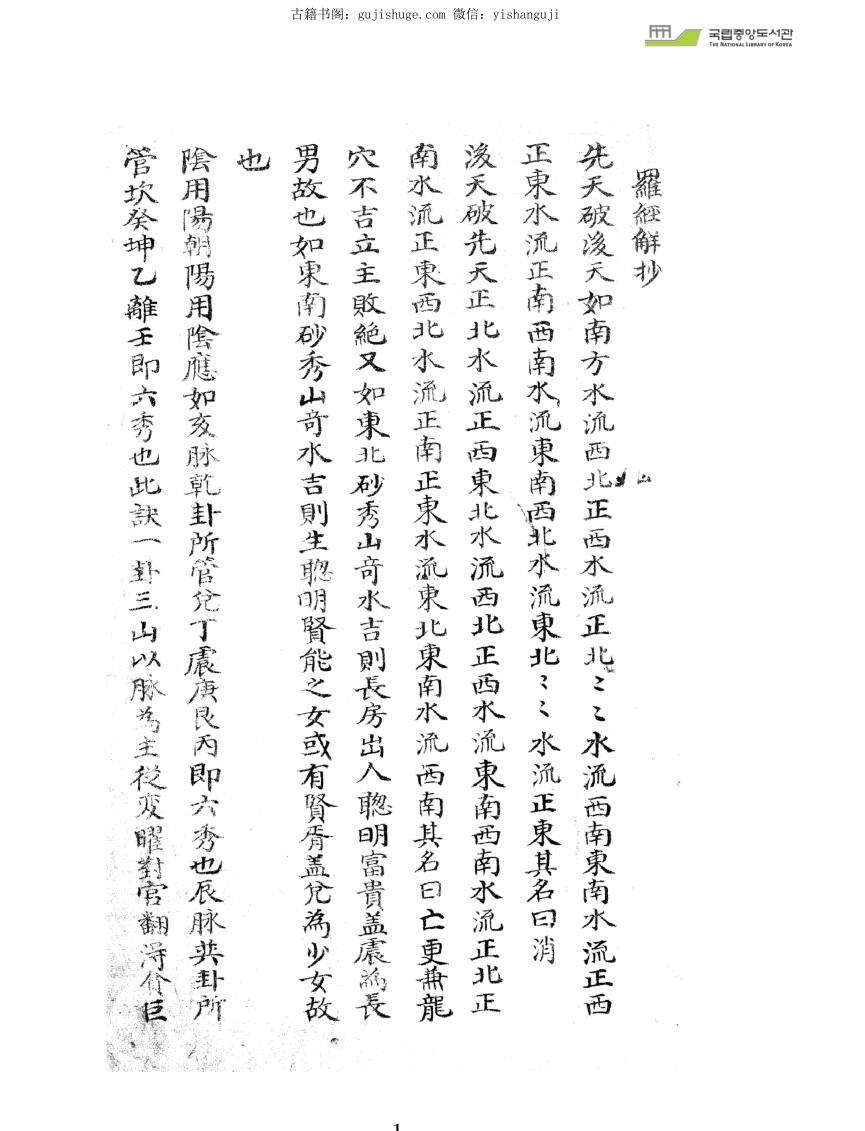 古籍书阁：gujishuge.com 微信：yishanguji
국립중앙도서관
THE NATIONAL LIBRARY OF KOREA
羅經解抄
先天破後天如南方水流西北正西水流正北〻〻水流西南東南水流正西
正東水流正南西南水流東南西北水流東北〻〻水流正東其名曰消
後天破先天正北水流正西東北水流西北正西水流東南西南水流正北正
南水流正東西北水流正南正東水流東北東南水流西南其名曰亡更兼龍
穴不吉立主敗絕又如東北砂秀山竒水吉則長房出人聰明富貴盖震為長
男故也如東南砂秀山竒水吉則生聰明賢能之女或有賢胥盖兌為少女故
也
陰用陽朝陽用陰應如亥脉乾卦所管兌丁震庚艮丙即六秀也辰脉巽卦所
管坎癸坤乙離壬即六秀也此訣一卦三山以脉為主從変曜對宮翻淂貪巨
1